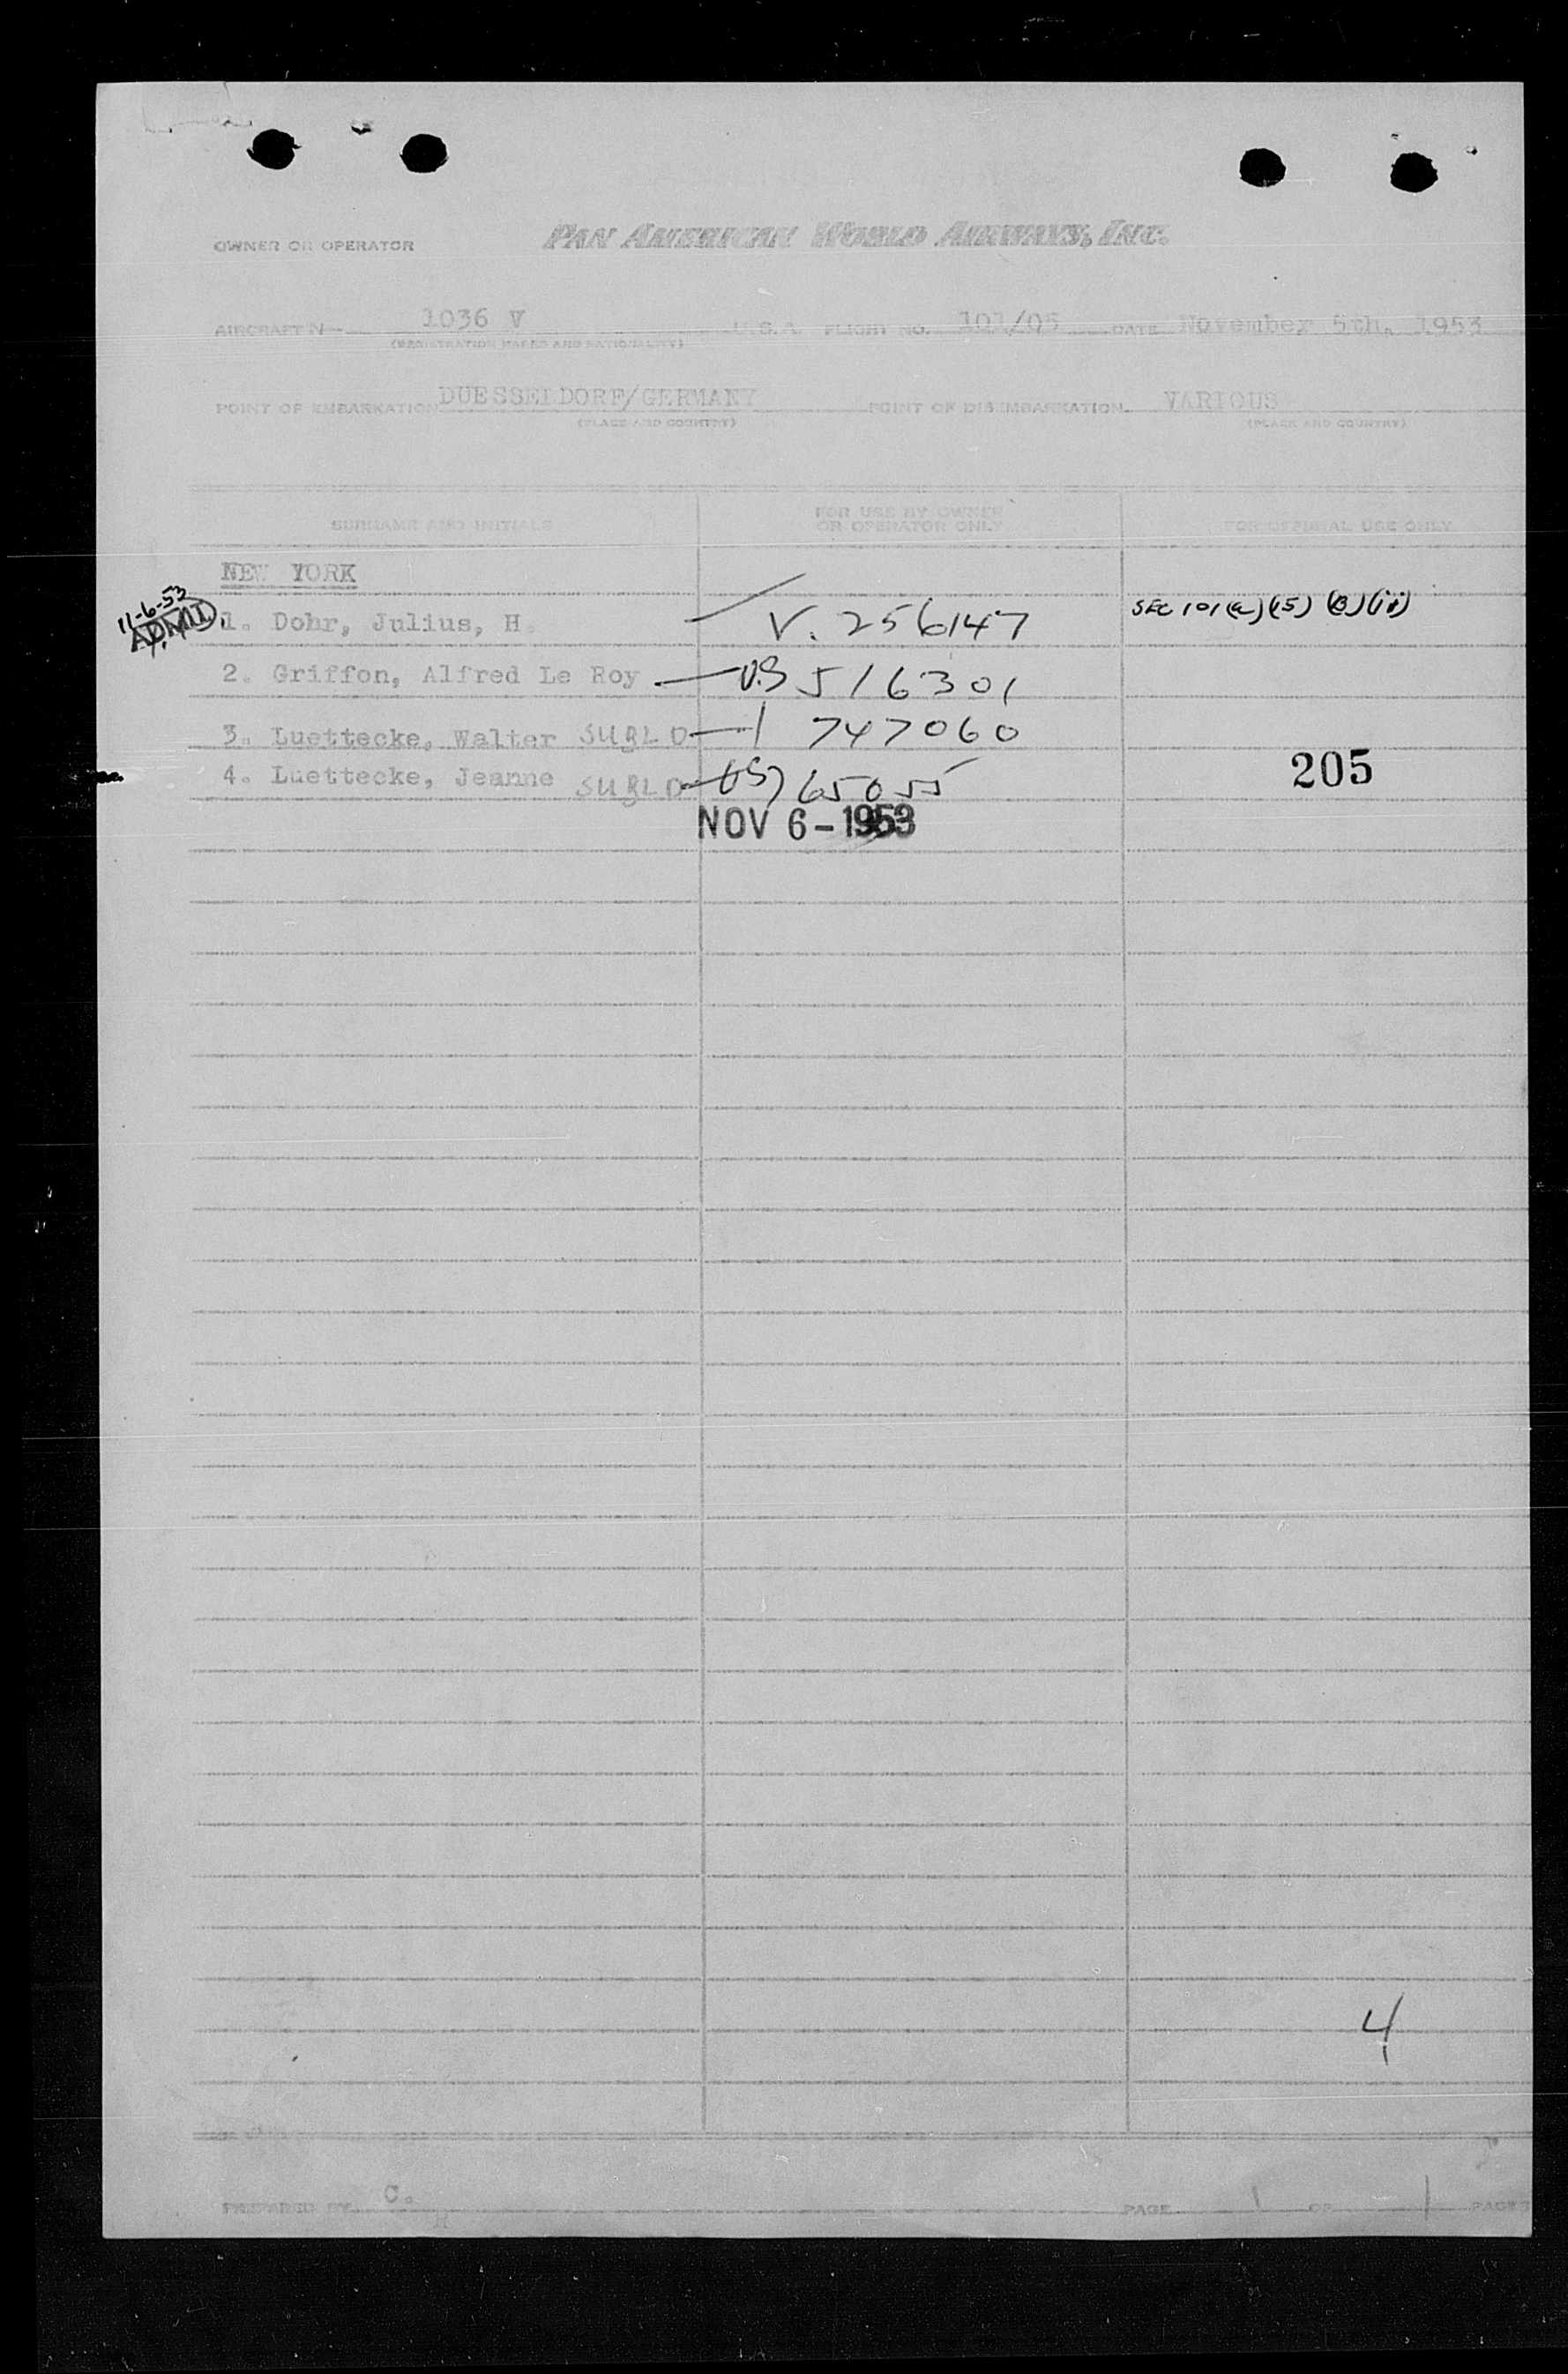 OWNER OR OPERATOR PAN AMERICAN WORLD AIRWAYS, INC.
AIRCRAFT N— 1036 V U. S. A. FLIGHT NO. 101/05 DATE November 5th, 1953
(REGISTRATION MARKS AND NATIONALITY)
POINT OF EMBARKATION DUESSELDORF/GERMANY POINT OF DISEMBARKATION VARIOUS
(PLACE AND COUNTRY) (PLACE AND COUNTRY)
SURNAME AND INITIALS FOR USE BY OWNER OR OPERATOR ONLY FOR OFFICIAL USE ONLY
NEW YORK
11-6-53
1. Dohr, Julius, H. V. 256147 SEC 101(a)(15) (B)(ii)
2. Griffon, Alfred Le Roy — U.S 516301
3. Luettecke, Walter — 747060
4. Luettecke, Jeanne — US 765055 205
NOV 6 - 1953
4
PREPARED BY C. PAGE 1 OF 1 PAGES